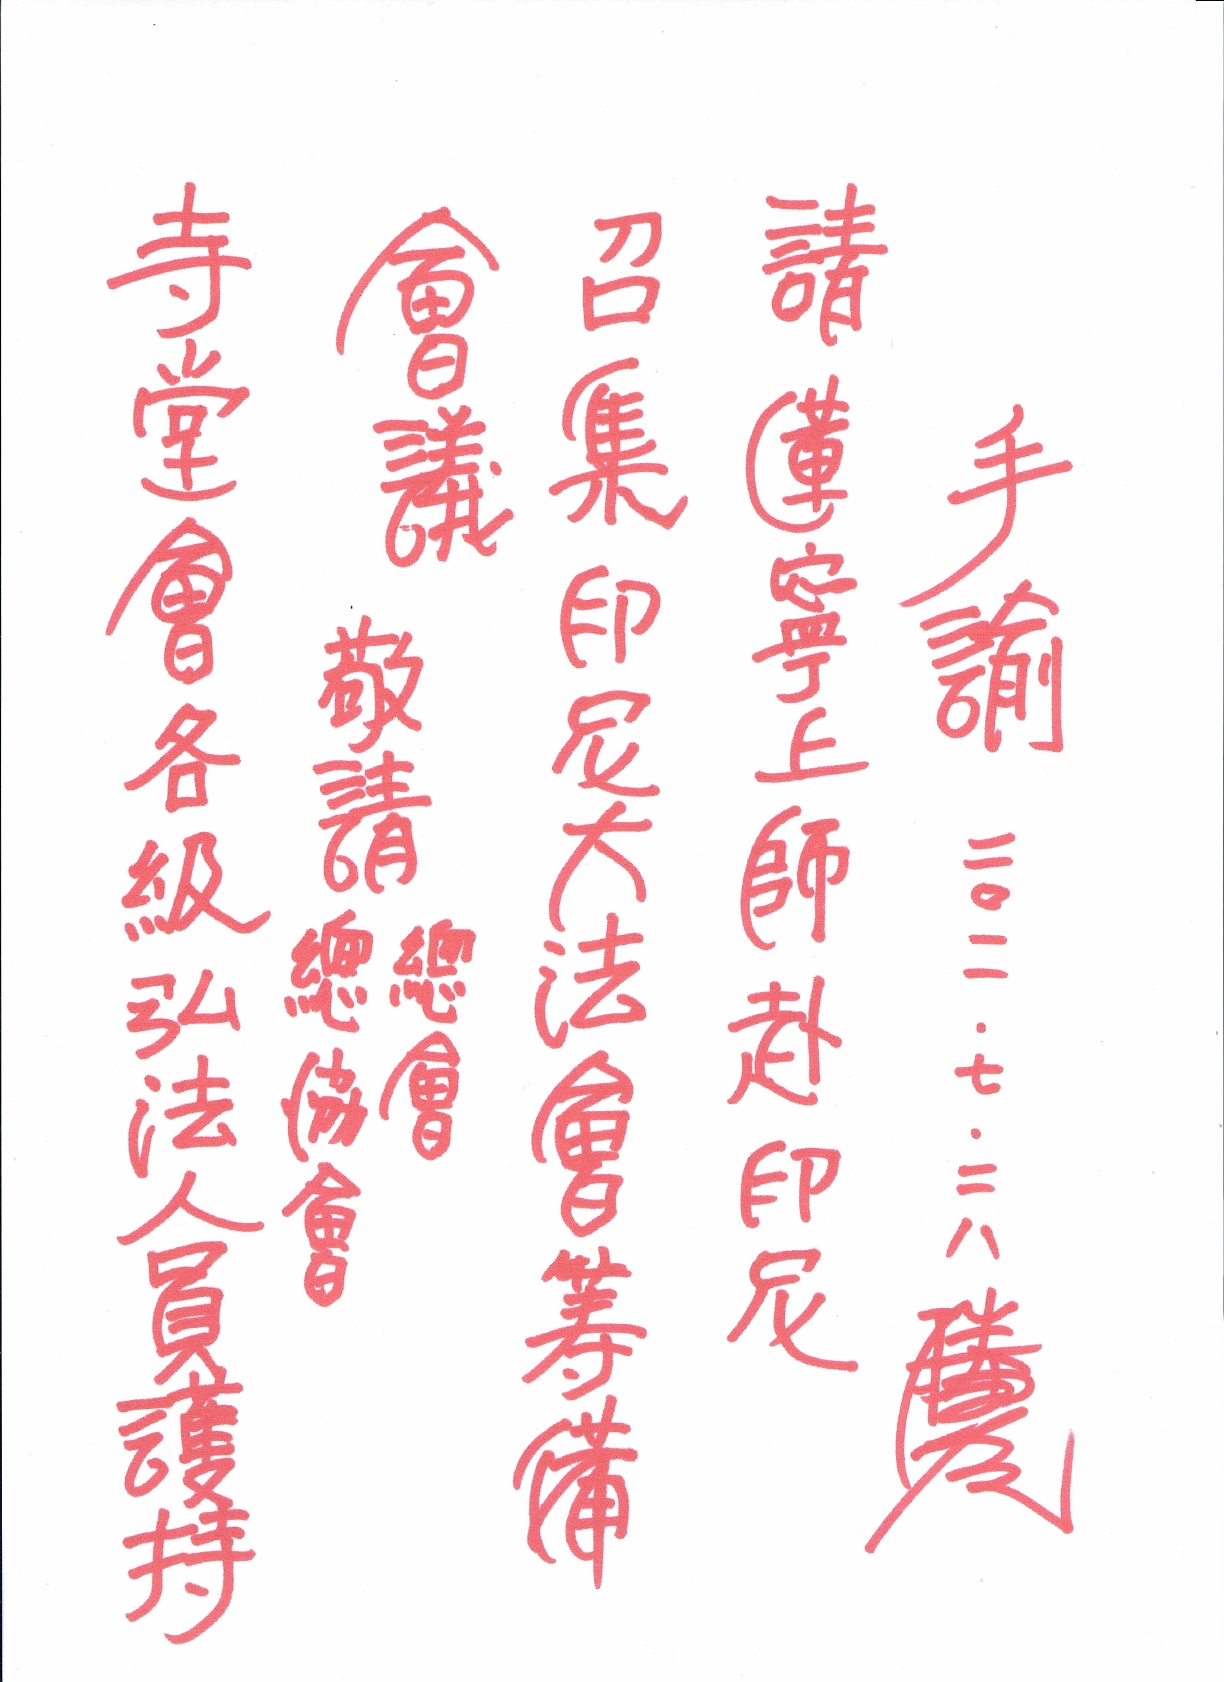 手諭 二〇二二.七.二八
請蓮寧上師赴印尼
召集印尼大法會籌備
會議 敬請 總會
總協會
寺堂會各級弘法人員護持